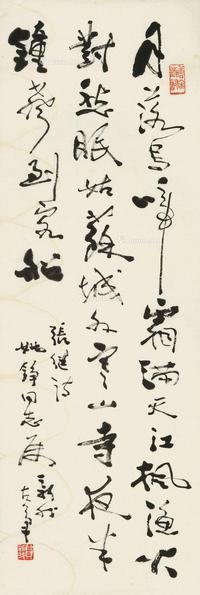 月落烏啼霜滿天江楓漁火
對愁眠姑蘇城外寒山寺夜半
鐘聲到客船
張繼詩
姚錚同志属
新我
左筆